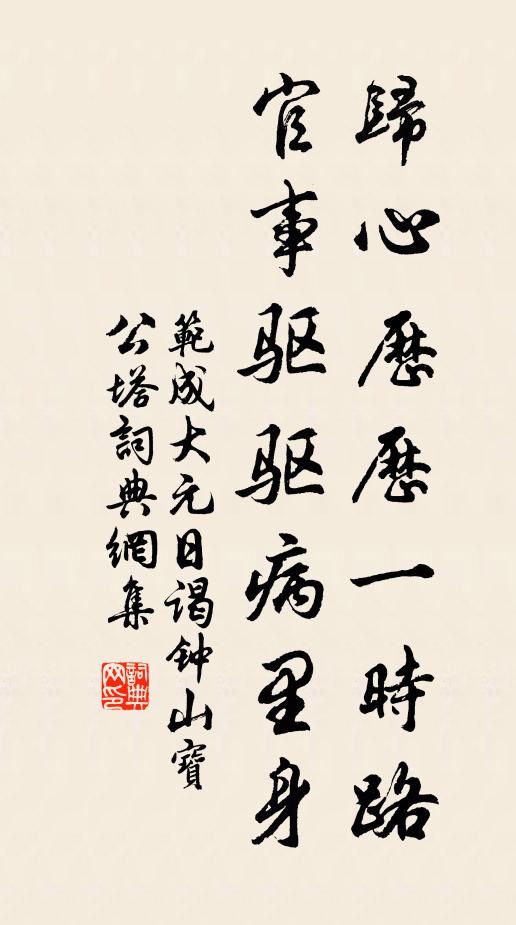 歸心歷歷一時路
官事驱驱病里身
範成大元日谒钟山寶
公塔詞典網集
詞典網印